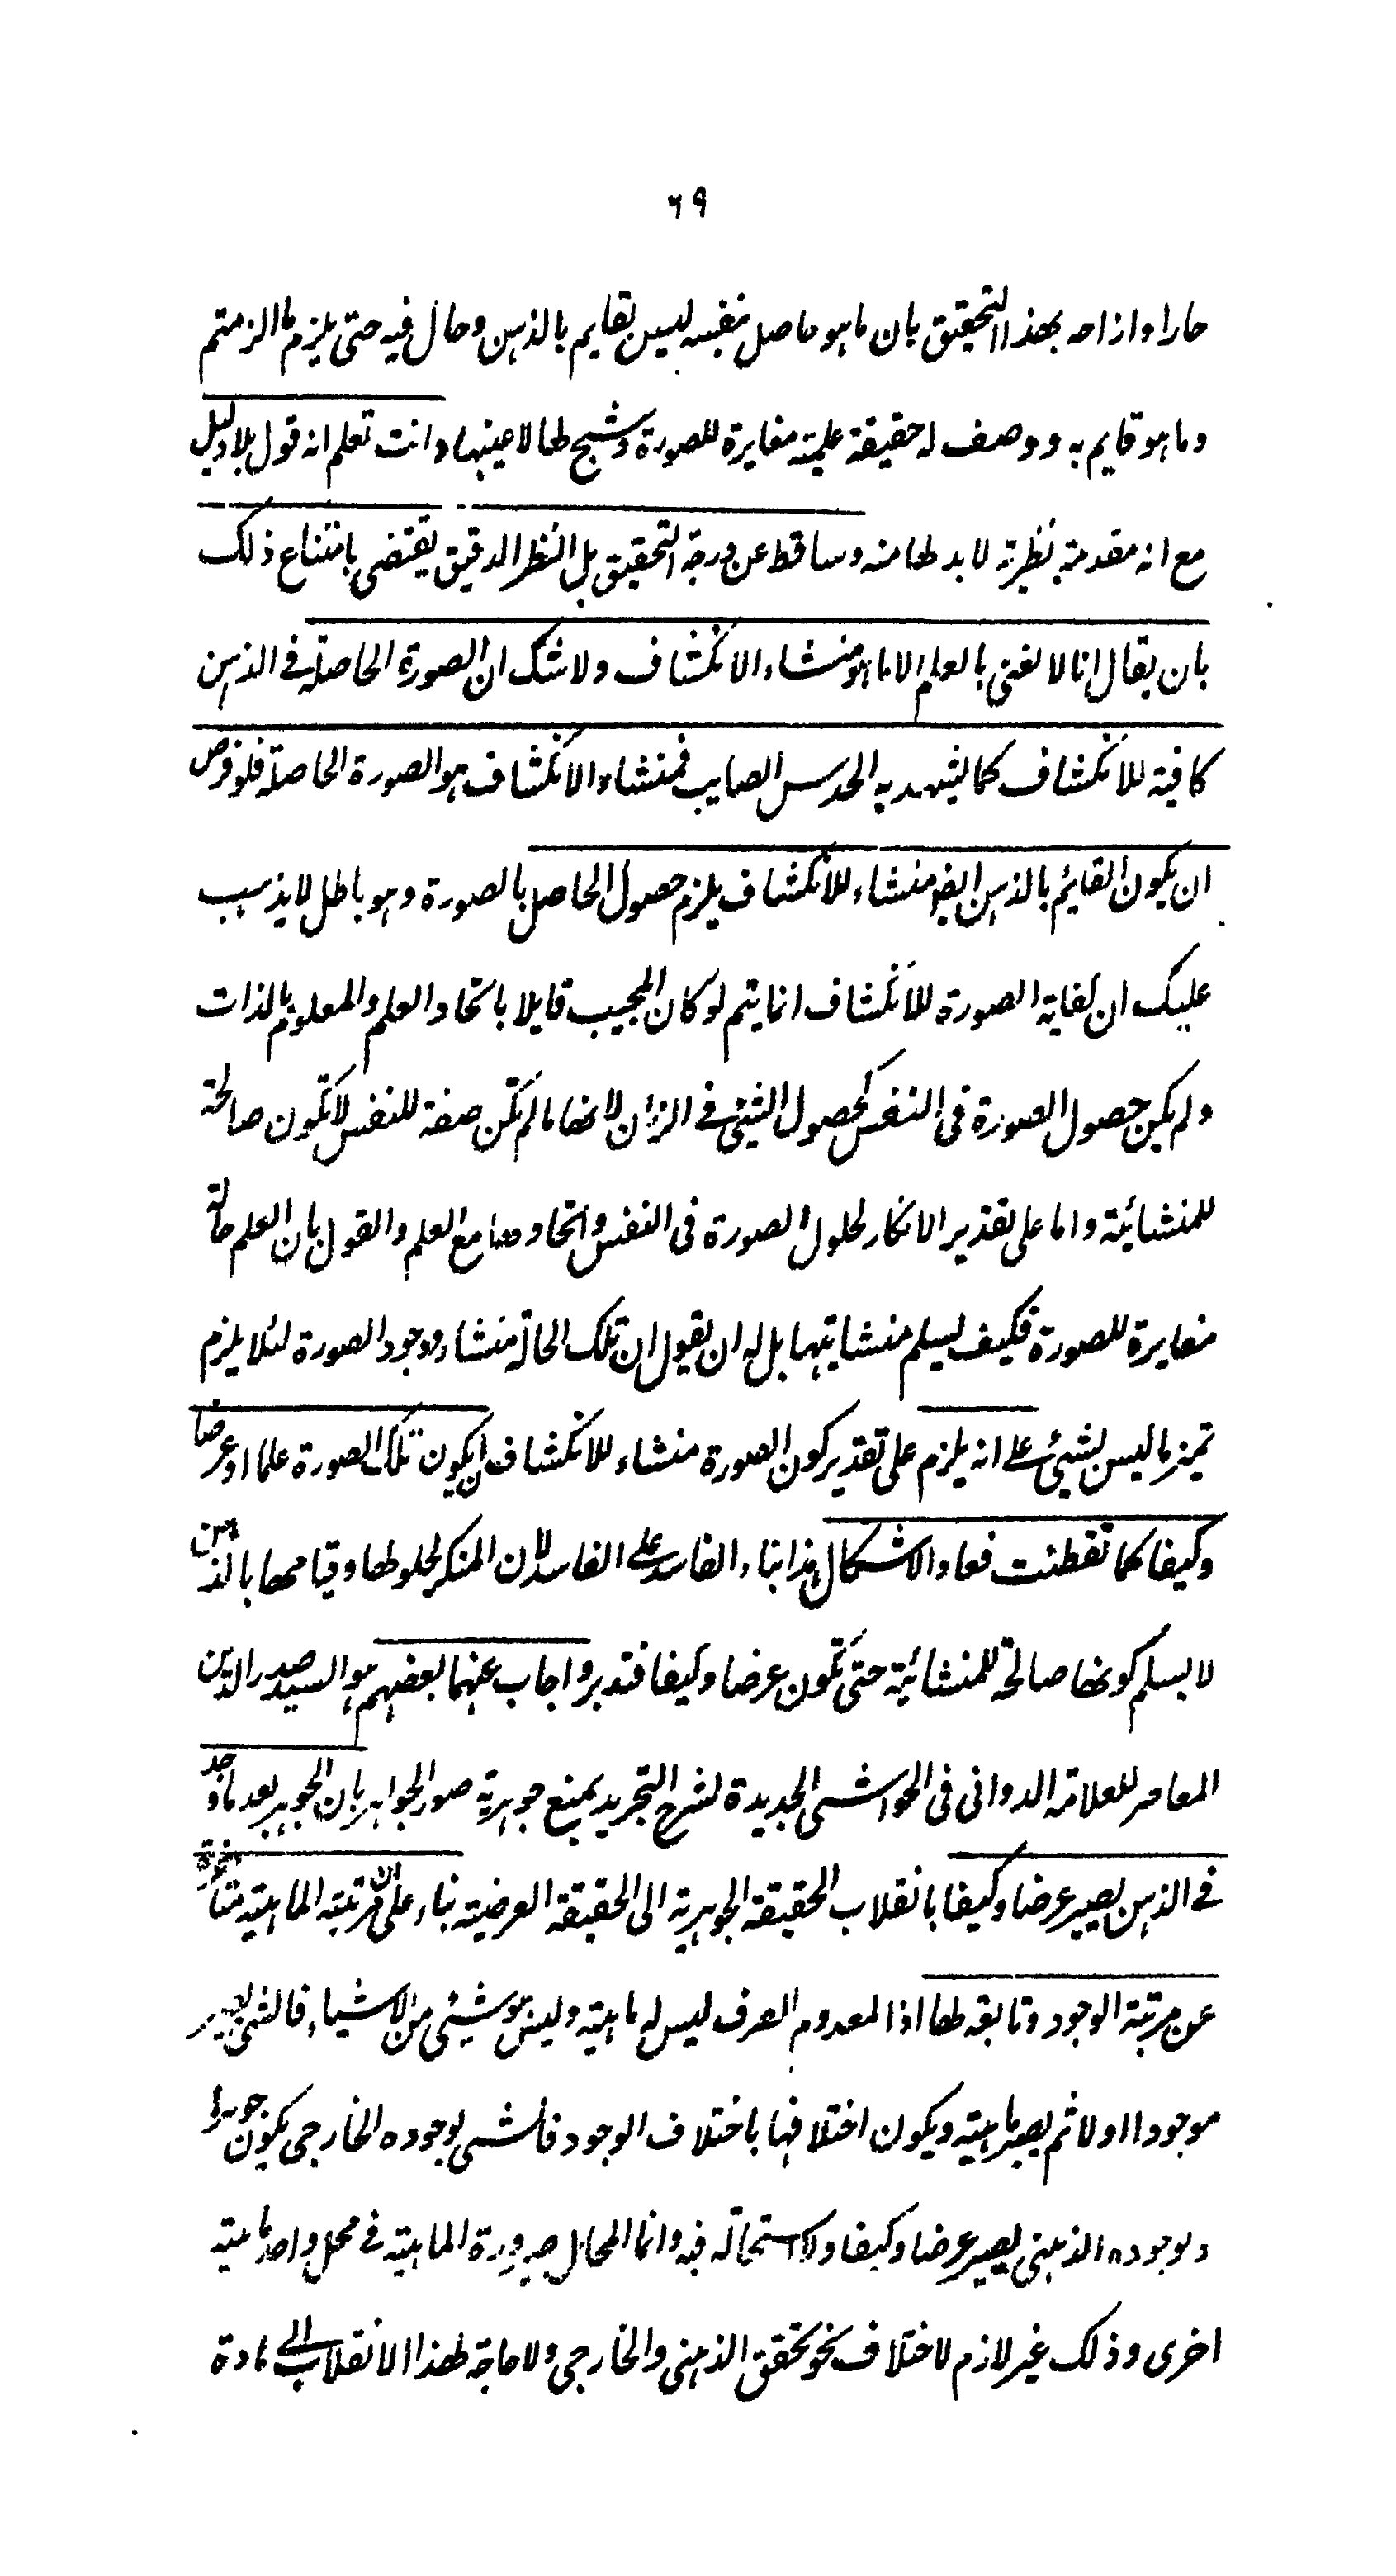 ٦٩
حارا وازاحه بهذا التحقيق بان ما هو حاصل بنفسه ليس بقايم بالذهن وحال فيه حتى يلزم ما الزمتم
وما هو قايم به ووصف له حقيقة علمية مغايرة للصورة وشبح لها لا عينها وانت تعلم انه قول بلا دليل
مع انه مقدمة نظرية لا بد لها منه وساقط عن درجة التحقيق بل النظر الدقيق يقتضى بامتناع ذلك
بان يقال انا لا نعنى بالعلم الا ما هو منشاء الانكشاف ولا شك ان الصورة الحاصلة فى الذهن
كافية للانكشاف كما يشهد به الحدس الصايب فمنشاء الانكشاف هو الصورة الحاصلة فلو فرض
ان يكون القايم بالذهن ايضا منشاء للانكشاف يلزم حصول الحاصل بالصورة وهو باطل لا يذهب
عليك ان كفاية الصورة للانكشاف انما يتم لو كان المجيب قايلا باتحاد العلم والمعلوم بالذات
ولم يكن حصول الصورة فى النفس كحصول الشيئ فى الزمان لانها ما لم تكن صفة للنفس لا تكون صالحة
للمنشائية واما على تقدير الانكار لحلول الصورة فى النفس واتحادها مع العلم والقول بان العلم حالة
مغايرة للصورة فكيف يسلم منشايتها بل له ان يقول ان تلك الحالة منشاء وجود الصورة لئلا يلزم
تميز ما ليس بشيئ على انه يلزم على تقدير كون الصورة منشاء للانكشاف ان يكون تلك الصورة علما او عرضا
وكيفا كما تفطنت فعاد الاشكال هذا بناء الفاسد على الفاسد لان المنكر لحلولها وقيامها بالذهن
لا يسلم كونها صالحة للمنشائية حتى تكون عرضا وكيفا فتدبر واجاب عنهما بعضهم هو السيد صدر الدين
المعاصر للعلامة الدوانى فى الحواشى الجديدة لشرح التجريد بمنع جوهرية صور الجواهر بان الجوهر بعد ما وجد
فى الذهن يصير عرضا وكيفا بانقلاب الحقيقة الجوهرية الى الحقيقة العرضية بناء على ان مرتبة الماهية متأخرة
عن مرتبة الوجود وتابعة لها اذ المعدوم الصرف ليس له ماهية وليس هو شيئى من الاشياء فالشئ يصير
موجودا اولا ثم يصير ماهية ويكون اختلافها باختلاف الوجود فالشى لوجوده الخارجى يكون جوهرا
ولوجوده الذهنى يصير عرضا وكيفا ولا استحالة فيه وانما المحال صيرورة الماهية فى محل واحد ماهية
اخرى وذلك غير لازم لاختلاف نحو تحقق الذهنى والخارجى ولا حاجة لهذا الانقلاب الى مادة